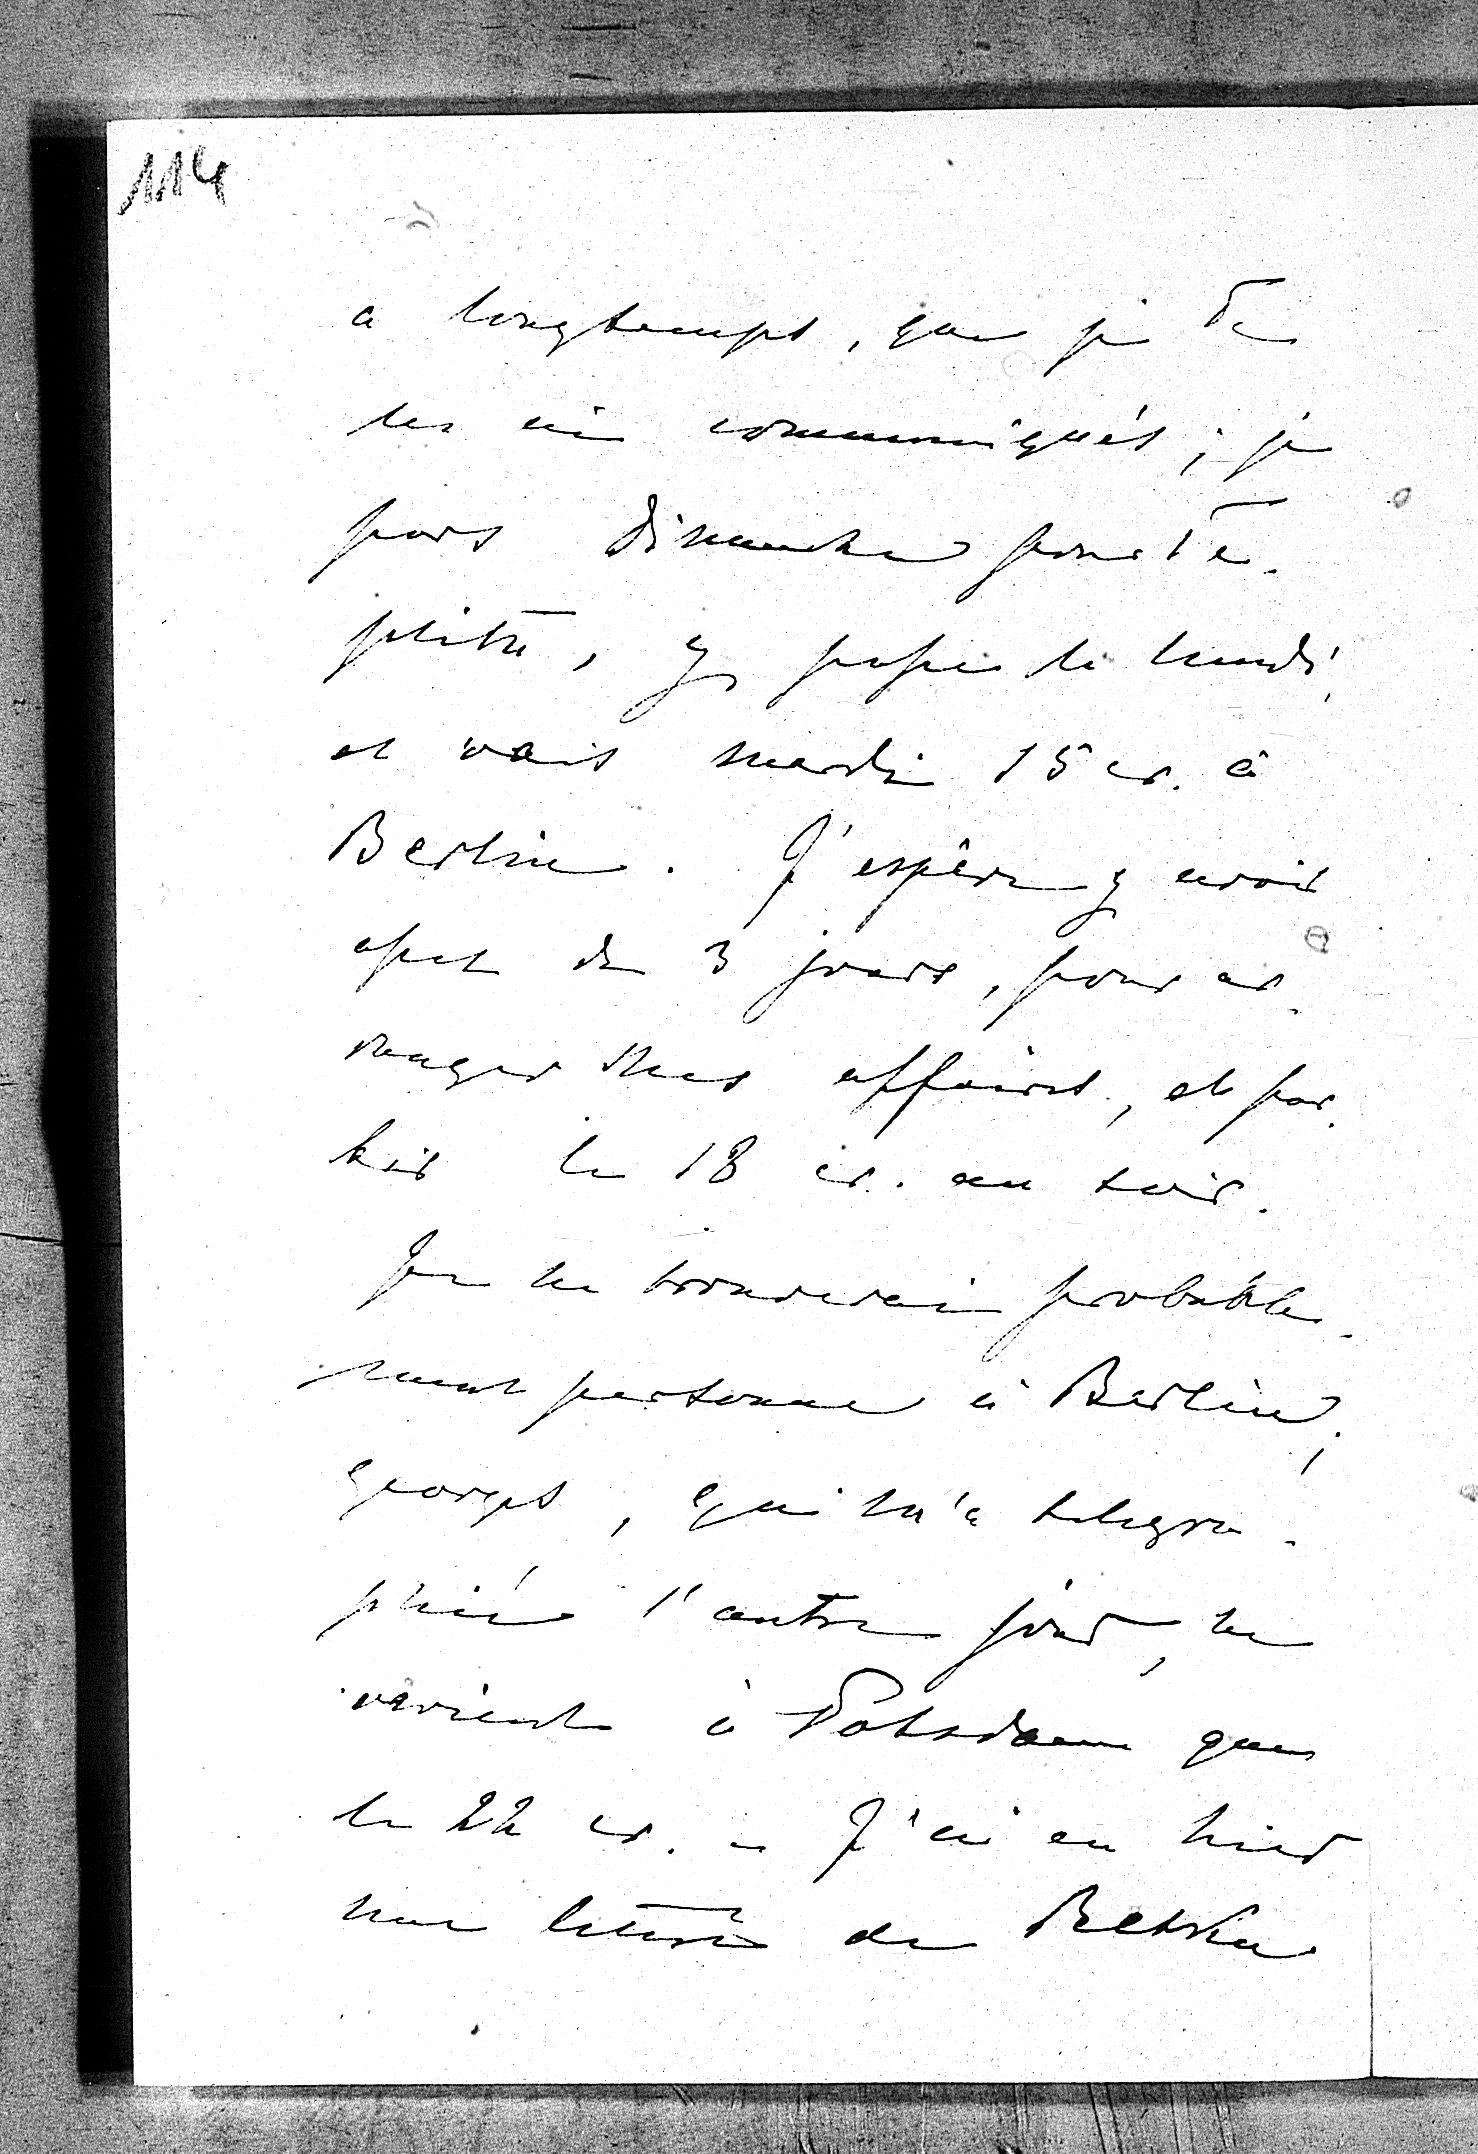 114
a longtemps, que je Te
les ai communiqués; je
pars Dimanche pour Te-
plitz, y passe le lundi,
et vais mardi 15 cr. à
Berlin. J'espère y avoir
assez de 3 jours, pour ar-
ranger mes affaires, et par-
tir le 18 cr. au soir.
Je ne trouverai probable-
ment personne à Berlin;
Georges, qui m'a telegra-
phié l'autre jour, ne
revient à Potsdam que
le 22 cr. – J'ai eu hier
une lettre de